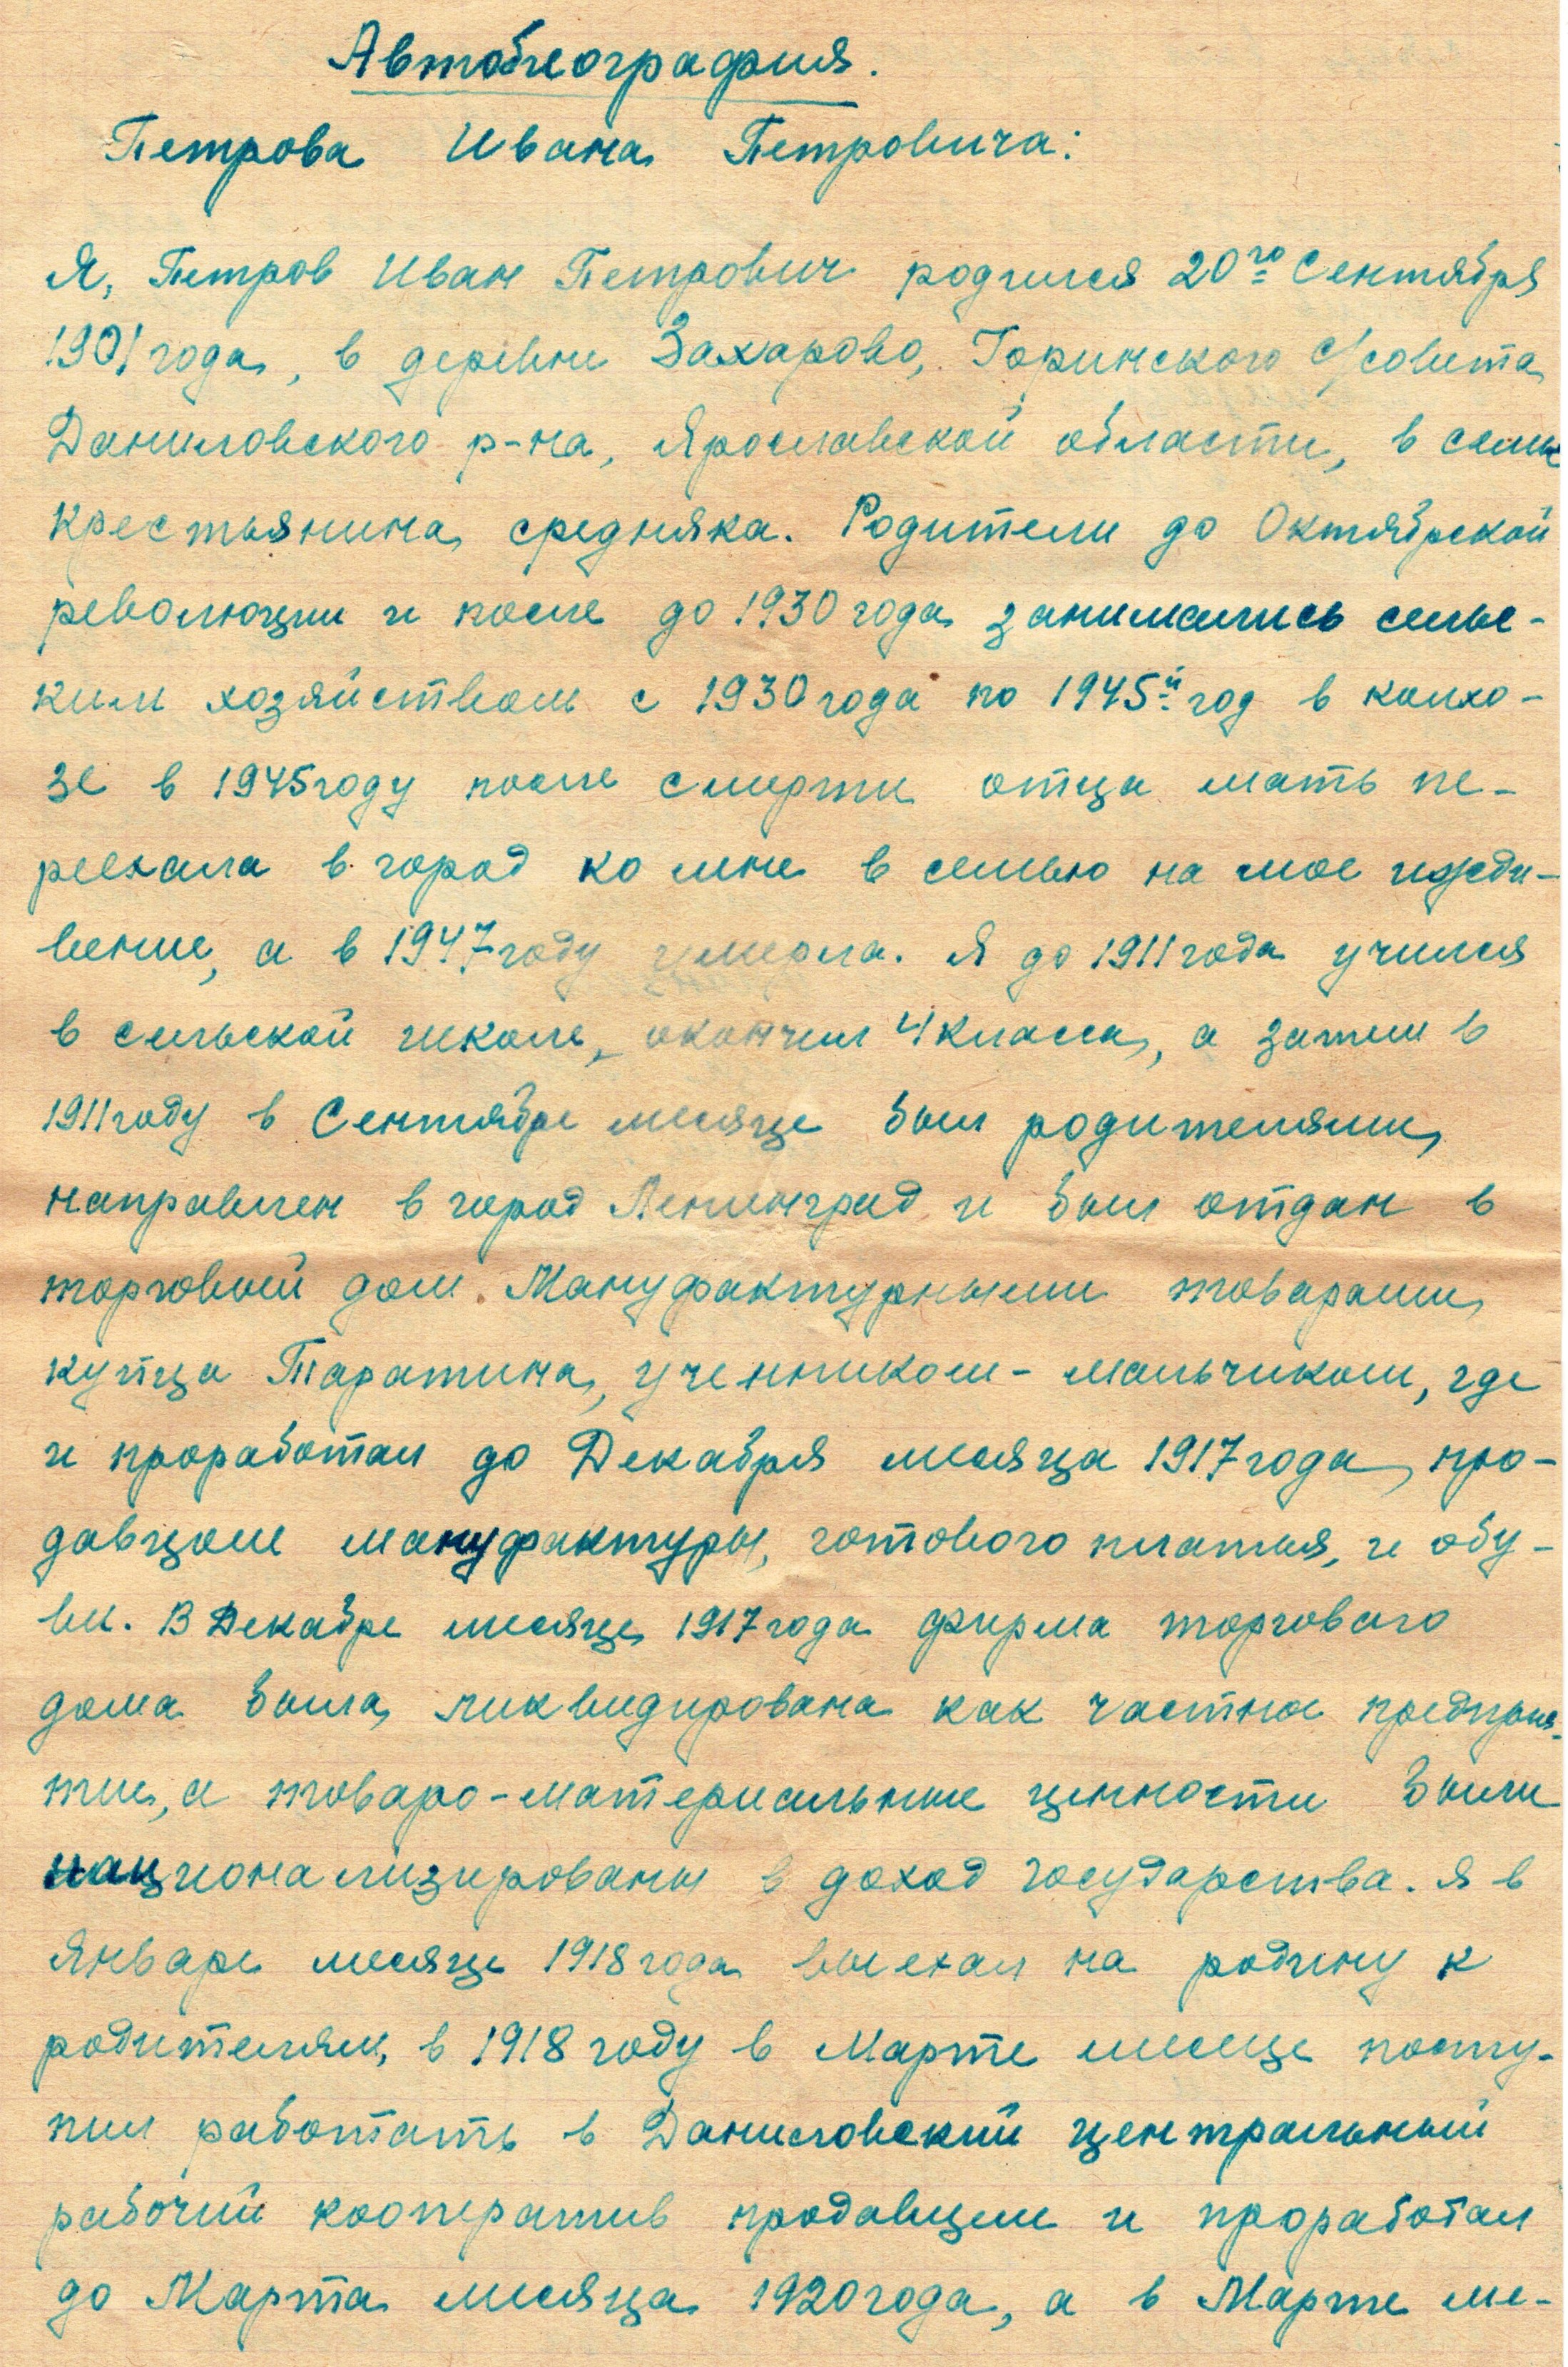 Автобиография.
Петрова Ивана Петровича:
Я, Петров Иван Петрович родился 20го Сентября
1901 года, в деревне Захарово, Горинского с/совета
Даниловского р-на, Ярославской области, в семье
крестьянина середняка. Родители до Октябрьской
революции и после до 1930 года занимались сельс-
ким хозяйством с 1930 года по 1945й год в колхо-
зе в 1945 году после смерти отца мать пе-
реехала в город ко мне в семью на мое ижди-
вение, а в 1947 году умерла. Я до 1911 года учился
в сельской школе, окончил 4 класса, а затем в
1911 году в Сентябре месяце был родителями
направлен в город Ленинград и был отдан в
торговый дом Мануфактурными товарами
купца Таратина, учеником-мальчиком, где
и проработал до Декабря месяца 1917 года, про-
давцом мануфактуры, готового платья, и обу-
ви. В Декабре месяце 1917 года фирма торгового
дома была ликвидирована как частное предприя-
тие, а товаро-материальные ценности были
национализированы в доход государства. Я в
Январе месяце 1918 года выехал на родину к
родителям, в 1918 году в Марте месяце посту-
пил работать в Даниловский центральный
рабочий кооператив продавцем и проработал
до Марта месяца 1920 года, а в Марте ме-